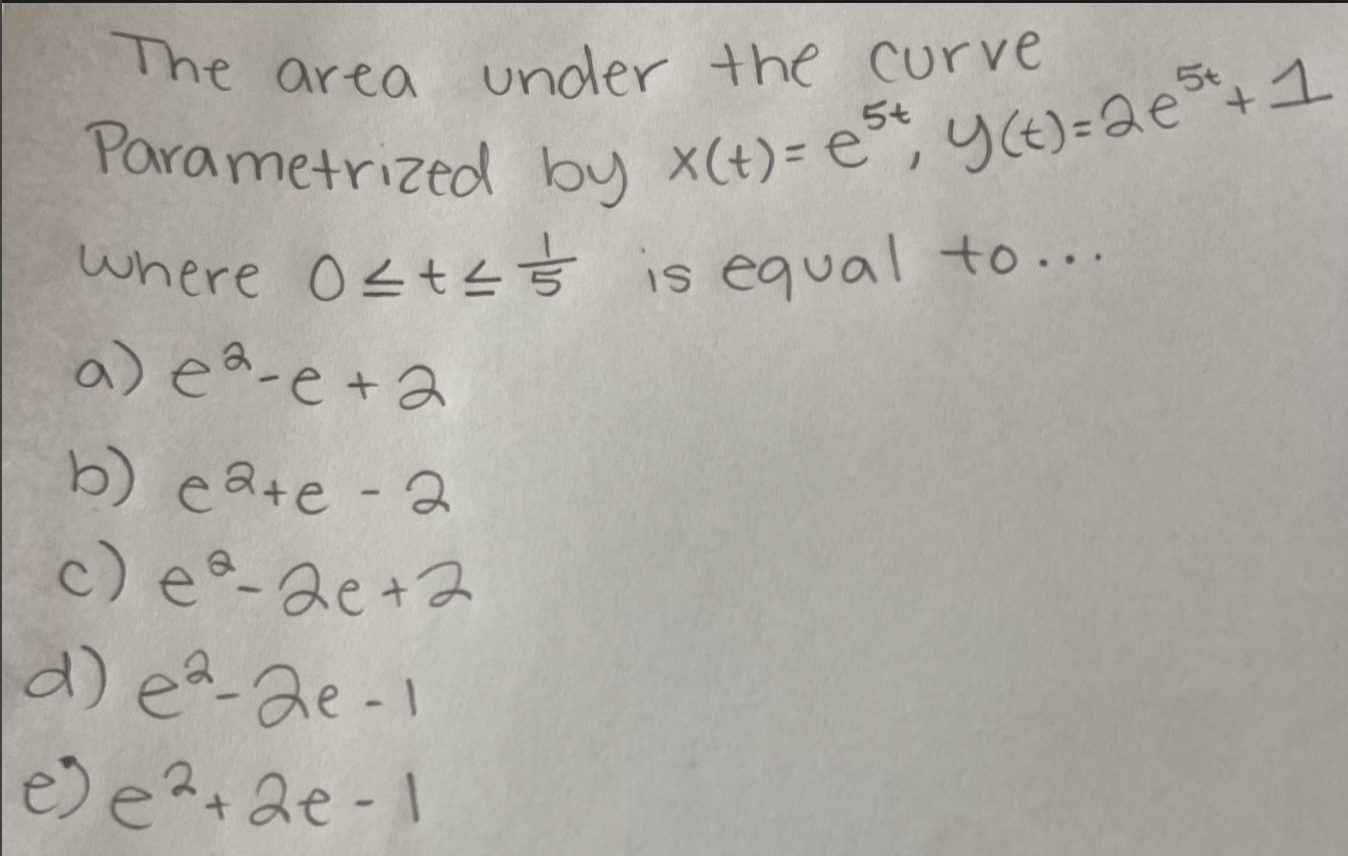 The area under the curve
Parametrized by x(t)= e^5t, y(t)=2e^5t+1
where 0≤t≤1/5 is equal to...
a) e^2-e+2
b) e^2+e-2
c) e^2-2e+2
d) e^2-2e-1
e) e^2+2e-1